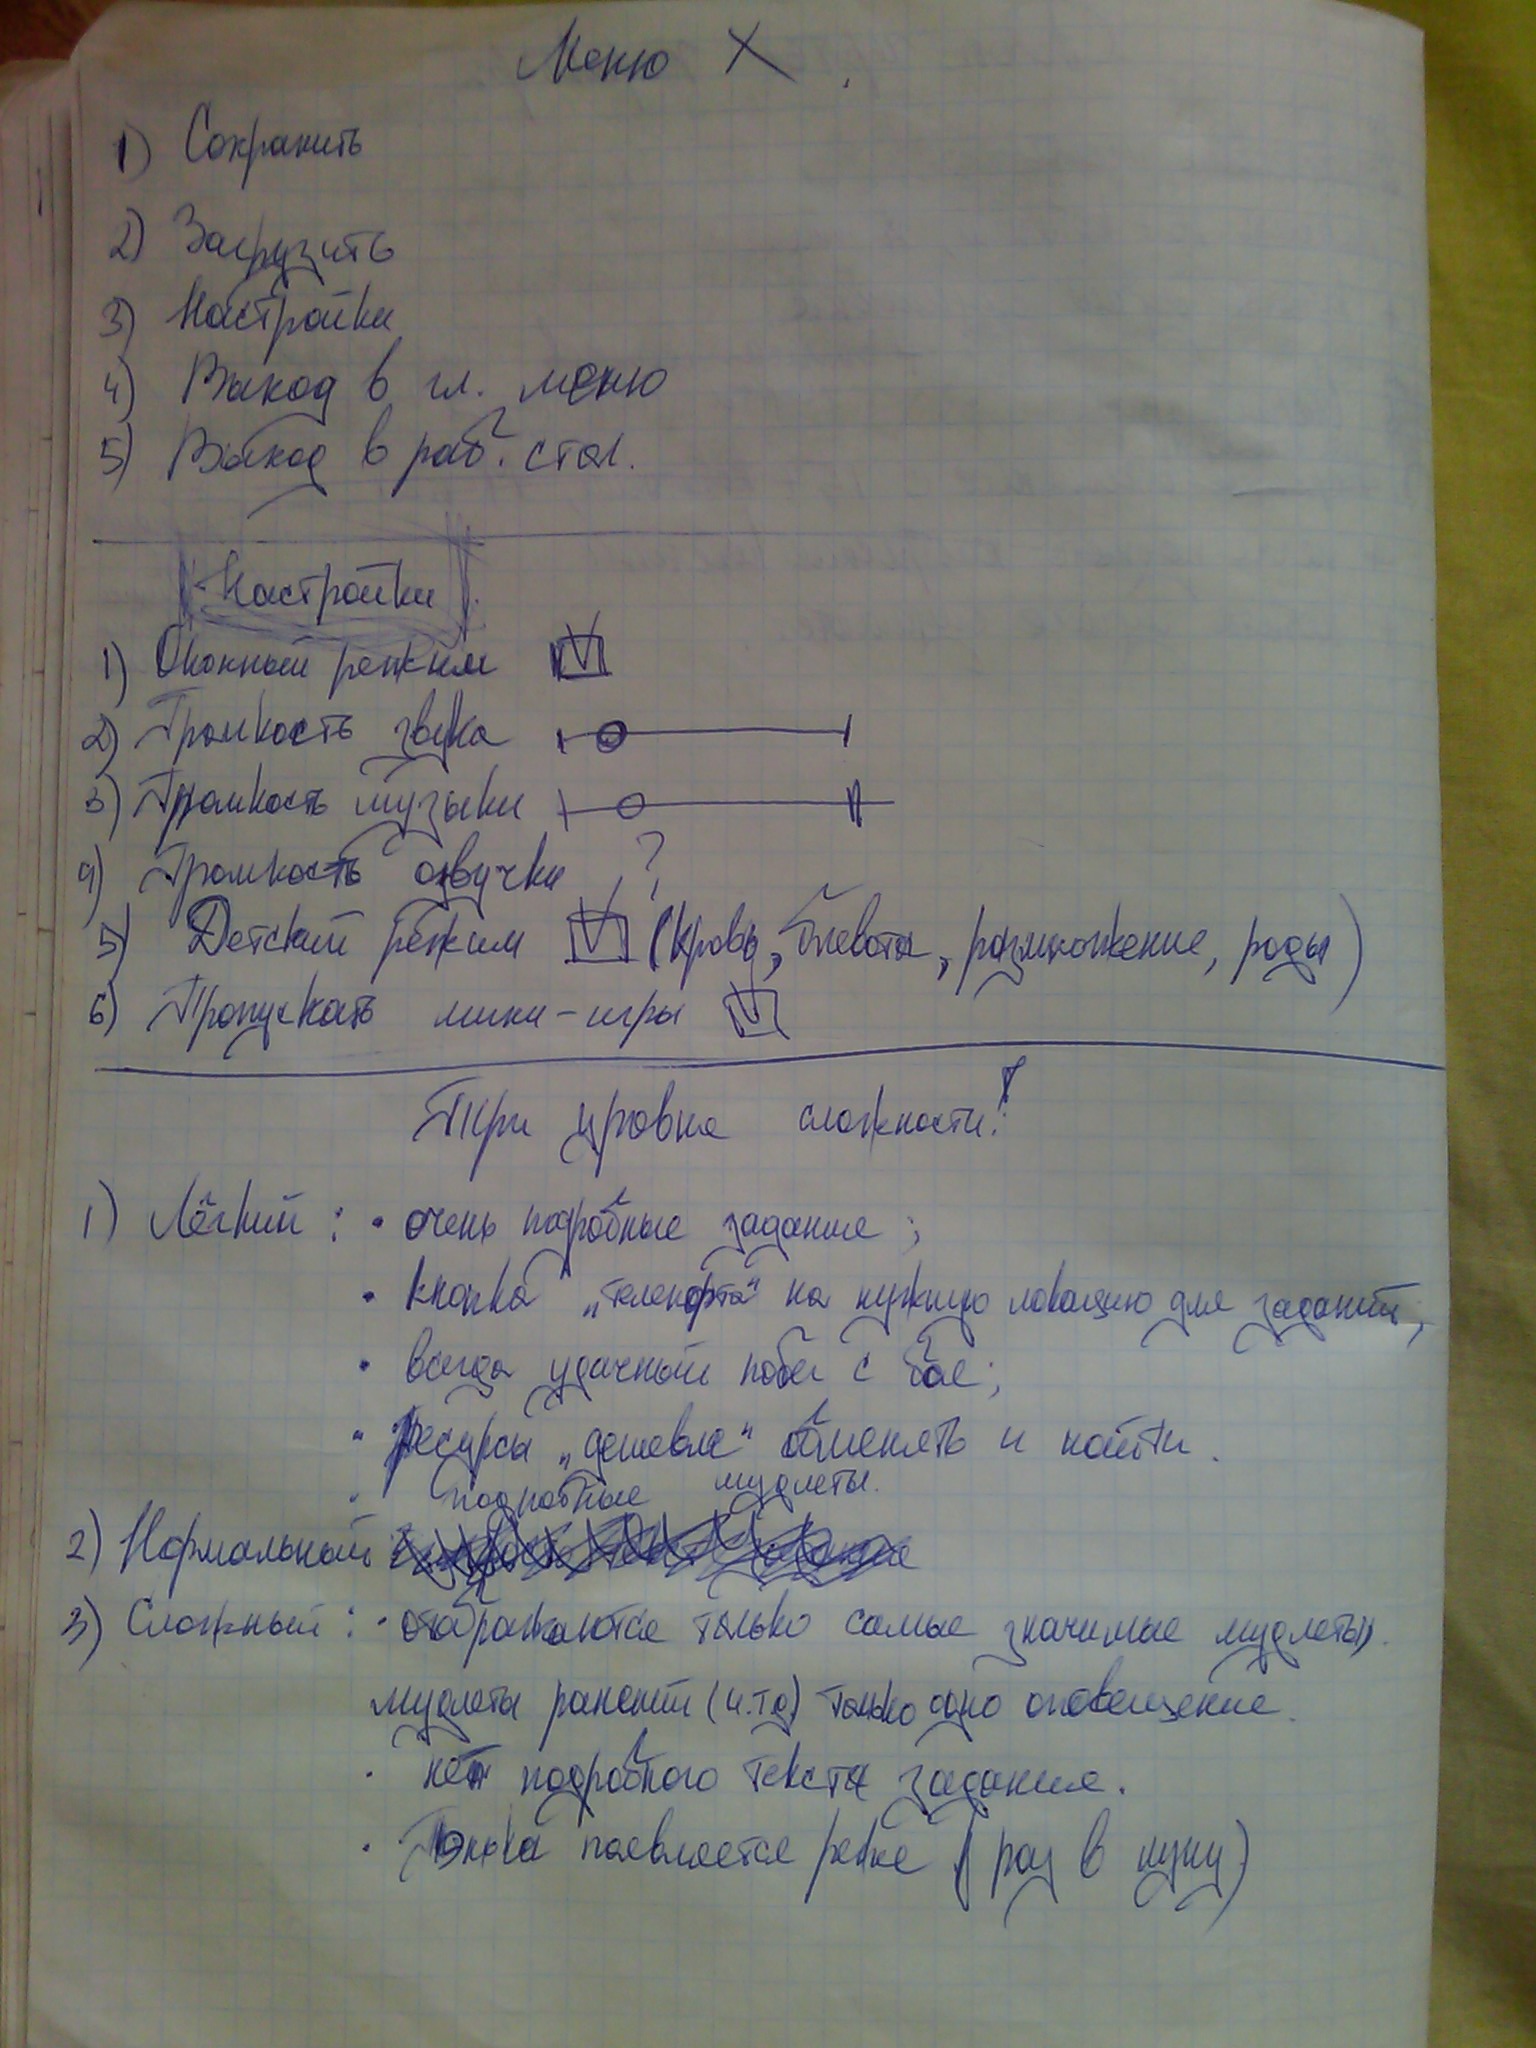 Меню X
1) Сохранить
2) Загрузить
3) Настройки
4) Выход в гл. меню
5) Выход в раб. стол.
Настройки
1) Оконный режим
2) Громкость звука
3) Громкость музыки
4) Громкость озвучки ?
5) Детский режим (кровь, блевота, размножение, роды)
6) Пропускать мини-игры
Три уровня сложности!
1) Лёгкий: • очень подробные задание;
• кнопка „телепорта“ на нужную локацию для заданий;
• всегда удачный побег с боя;
• ресурсы „дешевле“ обменять и найти.
• подробные мудлеты.
2) Нормальный
3) Сложный: • отображаются только самые значимые мудлеты.
мудлеты ранений (и.т.д) только одно оповещение.
• нет подробного текста задания.
• появляется реже (раз в луну)